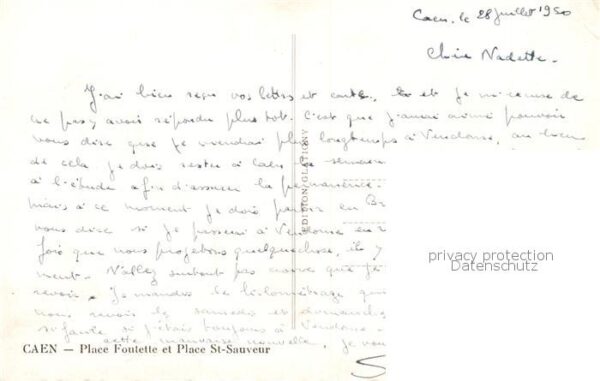 Caen. le 28 juillet 1950
Chère Nadette.
J'ai bien reçu vos lettres et carte, et je m'excuse de
ne pas y avoir répondu plus tôt. C'est que j'aurai aimé pouvoir
vous dire que je viendrai plus longtemps à Vendome, au lieu
de cela je dois rester à Caen la semaine
à l'étude afin d'assurer la permanence.
Mais à ce moment je dois partir en Br
vous dire si je passerai à Vendome en
fois que nous projetons quelquechose, il y
ment. N'allez surtout pas croire que je
revoir. Je maudis le kilométrage que
nous revoir les samedis et dimanches
si j'étais toujours à Vendome.
cette mauvaise nouvelle, je vou
EDITION GLATIGNY
privacy protection
Datenschutz
CAEN — Place Foutette et Place St-Sauveur